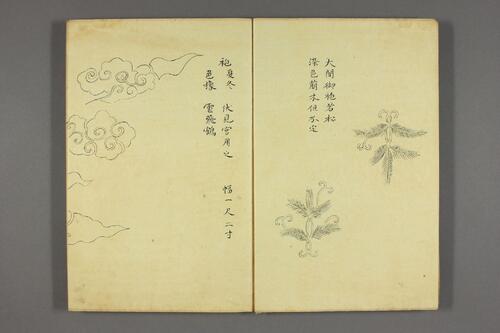 大閤御袍若松
深色蘭木但不定
袍夏冬 伏見宮用之 幅一尺二寸
色椽 雲飛鶴